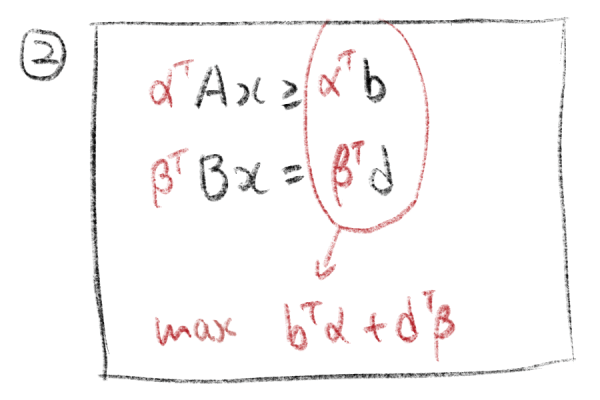 ②
αᵀAx ≥ αᵀb
βᵀBx = βᵀd
max bᵀα + dᵀβ